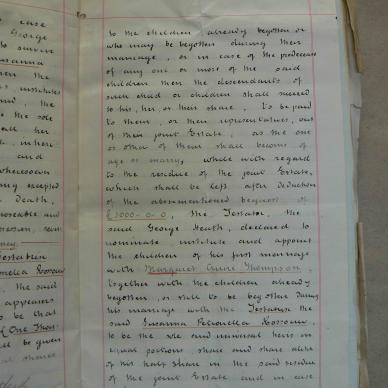 case
George
to survive
Susanna
the
institutes
the
the sole
all her
where
and
wheresoever
being excepted
Death,
Testatrix
Petronella Rossouw
the said
appears
to be that
of One Thou-
will be given
to the children already begotten or
who may be begotten during their
marriage, or in case of the predecease
of any one or more of the said
children then the descendants of
such child or children shall succeed
to his, her, or their share, to be paid
to them, or their representatives, out
of their joint Estate, as the one
or other of them shall become of
age or marry, while with regard
to the residue of the joint Estate,
which shall be left after deduction
of the abovementioned bequest of
£3000-0-0, the Testator, the
said George Heath, declared to
nominate institute and appoint
the children of his first marriage
with Margaret Anne Thompson,
together with the children already
begotten, or still to be begotten during
his marriage with the Testatrix the
said Susanna Petronella Rossouw,
to be the sole and universal heirs in
equal portions share and share alike
of his half share in the said residue
of the joint Estate and in case